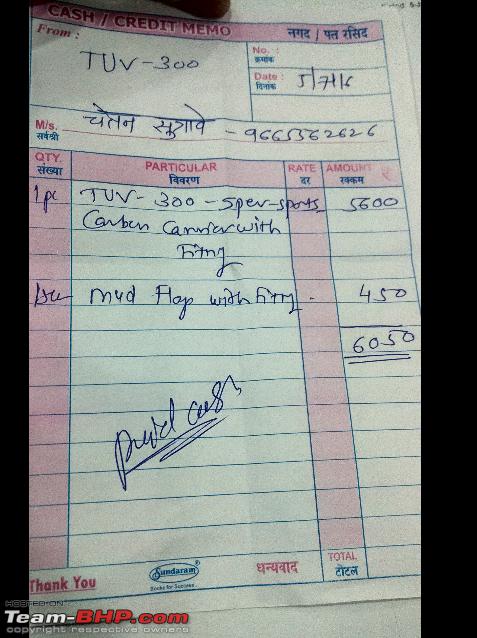 CASH / CREDIT MEMO
नगद / पत रसिद
From :
TUV-300
No. :
क्रमांक
Date :
दिनांक
5/7/16
M/s.
सर्वश्री
चेतन सुग्रावे - 9665362626
QTY.
संख्या
PARTICULAR
विवरण
RATE
दर
AMOUNT ₹
रक्कम
1 pc TUV-300-Sper-sports 5600
Carben Carrier with
Fitng
Mud Flap with Fitng - 450
6050
paid cash
Thank You
Sundaram
Books for Success
धन्यवाद
TOTAL
टोटल
HOSTED ON :
Team-BHP.com
copyright respective owners